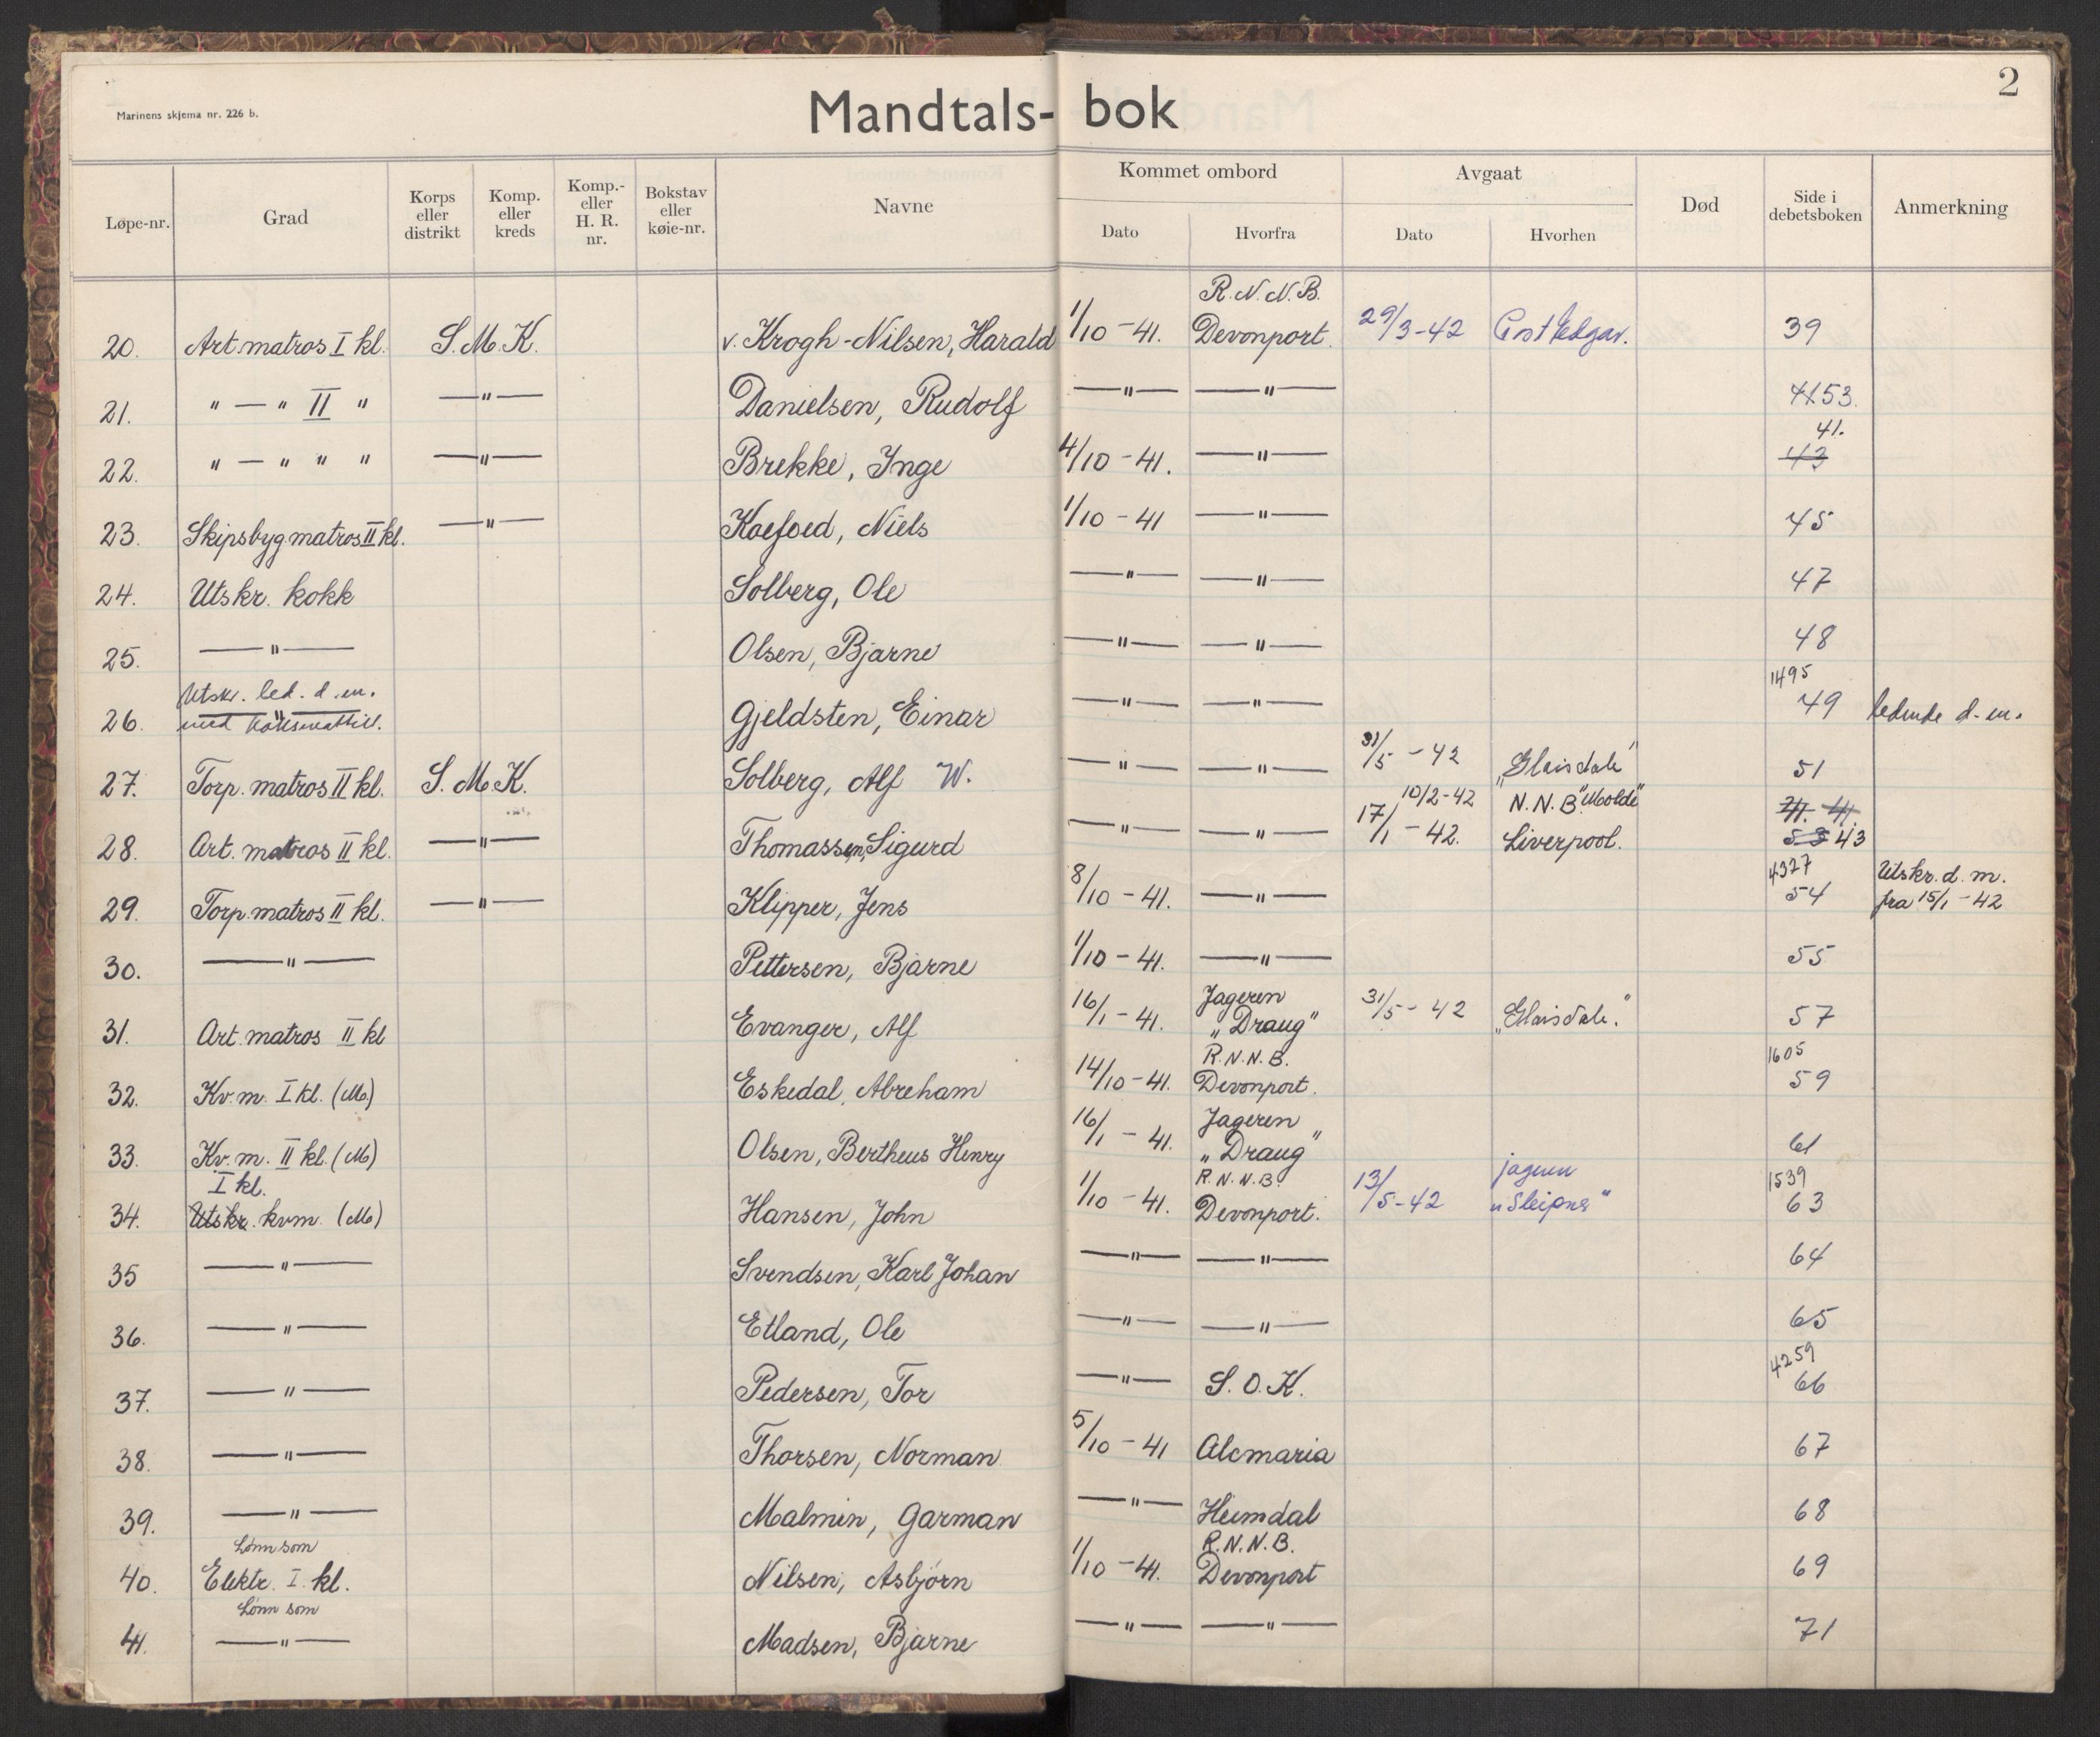 Marinens skjema nr. 226 b.
Mandtals- bok
2
Løpe-nr. Grad Korps eller distrikt Komp. eller kreds Komp.- eller H. R. nr. Bokstav eller køie-nr. Navne Kommet ombord Avgaat Død Side i debetsboken Anmerkning
Dato Hvorfra Dato Hvorhen
R.N.N.B.
20. Art. matros I kl. S.M.K. v. Krogh-Nilsen, Harald 1/10-41. Devonport. 29/3-42 Port Edgar. 39
21. " — " II " —"— Danielsen, Rudolf —"— —"— 53.
41.
22. " — " " " —"— Brekke, Inge 4/10-41. —"— 43
23. Skipsbyg. matros II kl. —"— Koefoed, Niels 1/10-41 —"— 45
24. Utskr. kokk Solberg, Ole —"— —"— 47
25. —"— Olsen, Bjarne —"— —"— 48
Utskr. led. d.m. 1495
26. —"— med Gjeldsten, Einar —"— —"— 49 ledende d-m.
27. Torp. matros II kl. S.M.K. Solberg, Alf W. —"— —"— 31/5-42 "Glaisdale" 51
10/2-42 N.N.B. "Molde"
28. Art. matros II kl. —"— Thomassen, Sigurd —"— —"— 17/1-42. Liverpool. 53 43
4327 Utskr. d. m.
29. Torp. matros II kl. —"— Klipper, Jens 8/10-41. —"— 54 fra 15/1-42
30. —"— Pettersen, Bjarne 1/10-41. —"— 55
Jageren
31. Art. matros II kl Evanger, Alf 16/1-41. "Draug" 31/5-42 "Glaisdale". 57
R.N.N.B. 1605
32. Kv. m. I kl. (M) Eskedal, Abreham 14/10-41. Devonport. 59
Jageren
33. Kv. m. II kl. (M) Olsen, Bertheus Henry 16/1-41. "Draug" 61
I kl. R.N.N.B. jageren 1539
34. Utskr. kvm. (M) Hansen, John 1/10-41. Devonport. 13/5-42 "Sleipner" 63
35 —"— Svendsen, Karl Johan —"— —"— 64
36. —"— Etland, Ole —"— —"— 65
4259
37. —"— Pedersen, Tor —"— S.O.K. 66
38. —"— Thorsen, Norman 5/10-41 Alcmaria 67
39. —"— Malmin, Garman —"— Heimdal 68
Lønn som R.N.N.B.
40. Elektr. I. kl. Nilsen, Asbjörn 1/10-41. Devonport 69
Lønn som
41. —"— Madsen, Bjarne —"— —"— 71